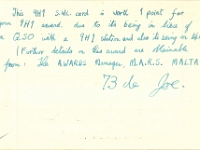 This 9H1 S.W.L. card is worth 1 point for
your 9H1 award, due to its being in lieu of
a QSO with a 9H1 station and also its being on
(Further details on this award are obtainable
from: The AWARDS Manager, M.A.R.S. MALTA
73 de Joe.